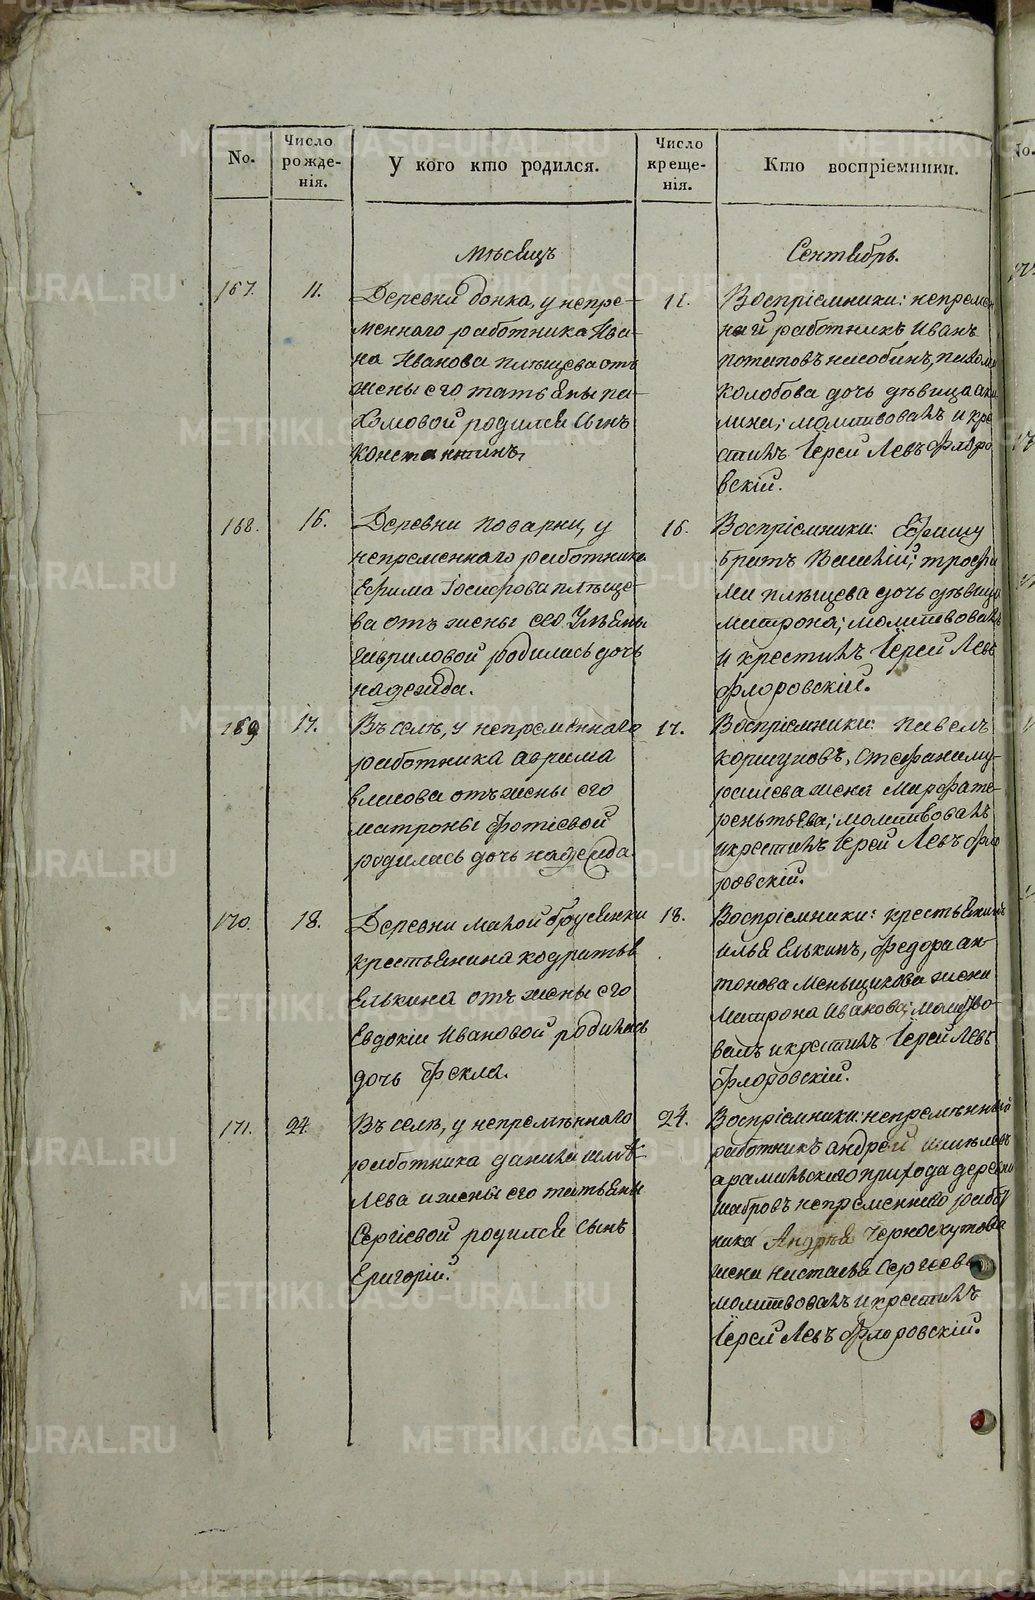 No.
Число рожде-
нія.
У кого кто родился.
Число креще-
нія.
Кто воспріемники.
Мѣсяцъ
Сентябрь.
167.
11.
Деревни донка, у непре-
менного работника Ива-
на Иванова плѣщева отъ
жены его татьяны па-
хомовой родился сынъ
константинъ,
11.
Воспріемники: непремен
ный работникъ Иванъ
потаповъ пахом
колобова дочь дѣвица аку
лина; молитвовалъ и кре
стилъ Іерей Левъ Флоро
вскій.
168.
16.
Деревни поварни, у
непременнаго работника
Ефима плѣще-
ва отъ жены его Ульяны
гавриловой родилась дочь
надежда.
16.
Воспріемники:
братъ Василій; трофи
ма плѣщева дочь дѣвица
матрона; молитвовалъ
и крестилъ Іерей Левъ
Флоровскій.
169
17.
Въ селѣ, у непременнаго
работника
власова отъ жены его
матроны фотіевой
родилась дочь надежда.
17.
Воспріемники: павелъ
коршуновъ, стефана му-
рашева жена марфа те-
рентьева; молитвовалъ
и крестилъ Іерей Левъ Фло
ровскій.
170.
18.
Деревни малой брусянки
крестьянина кодратья
Елькина отъ жены его
Евдокіи Ивановой родилась
дочь Фекла.
18.
Воспріемники: крестьянинъ
илья Елькинъ, федора ан-
тонова меньщикова жена
матрона иванова; молитво-
валъ и крестилъ Іерей Левъ
Флоровскій.
171.
24
Въ селѣ, у непремѣннаго
работника данила шмѣ-
лева и жены его татьяны
Сергіевой родился сынъ
Григорій.
24.
Воспріемники: непремѣнный
работникъ андрей шмѣлевъ
арамильскаго прихода деревни
шабровъ непременнаго работ
ника Андрея Черноскутова
жена настасья Сергеева
молитвовалъ и крестилъ
Іерей Левъ Флоровскій.
METRIKI.GASO-URAL.RU